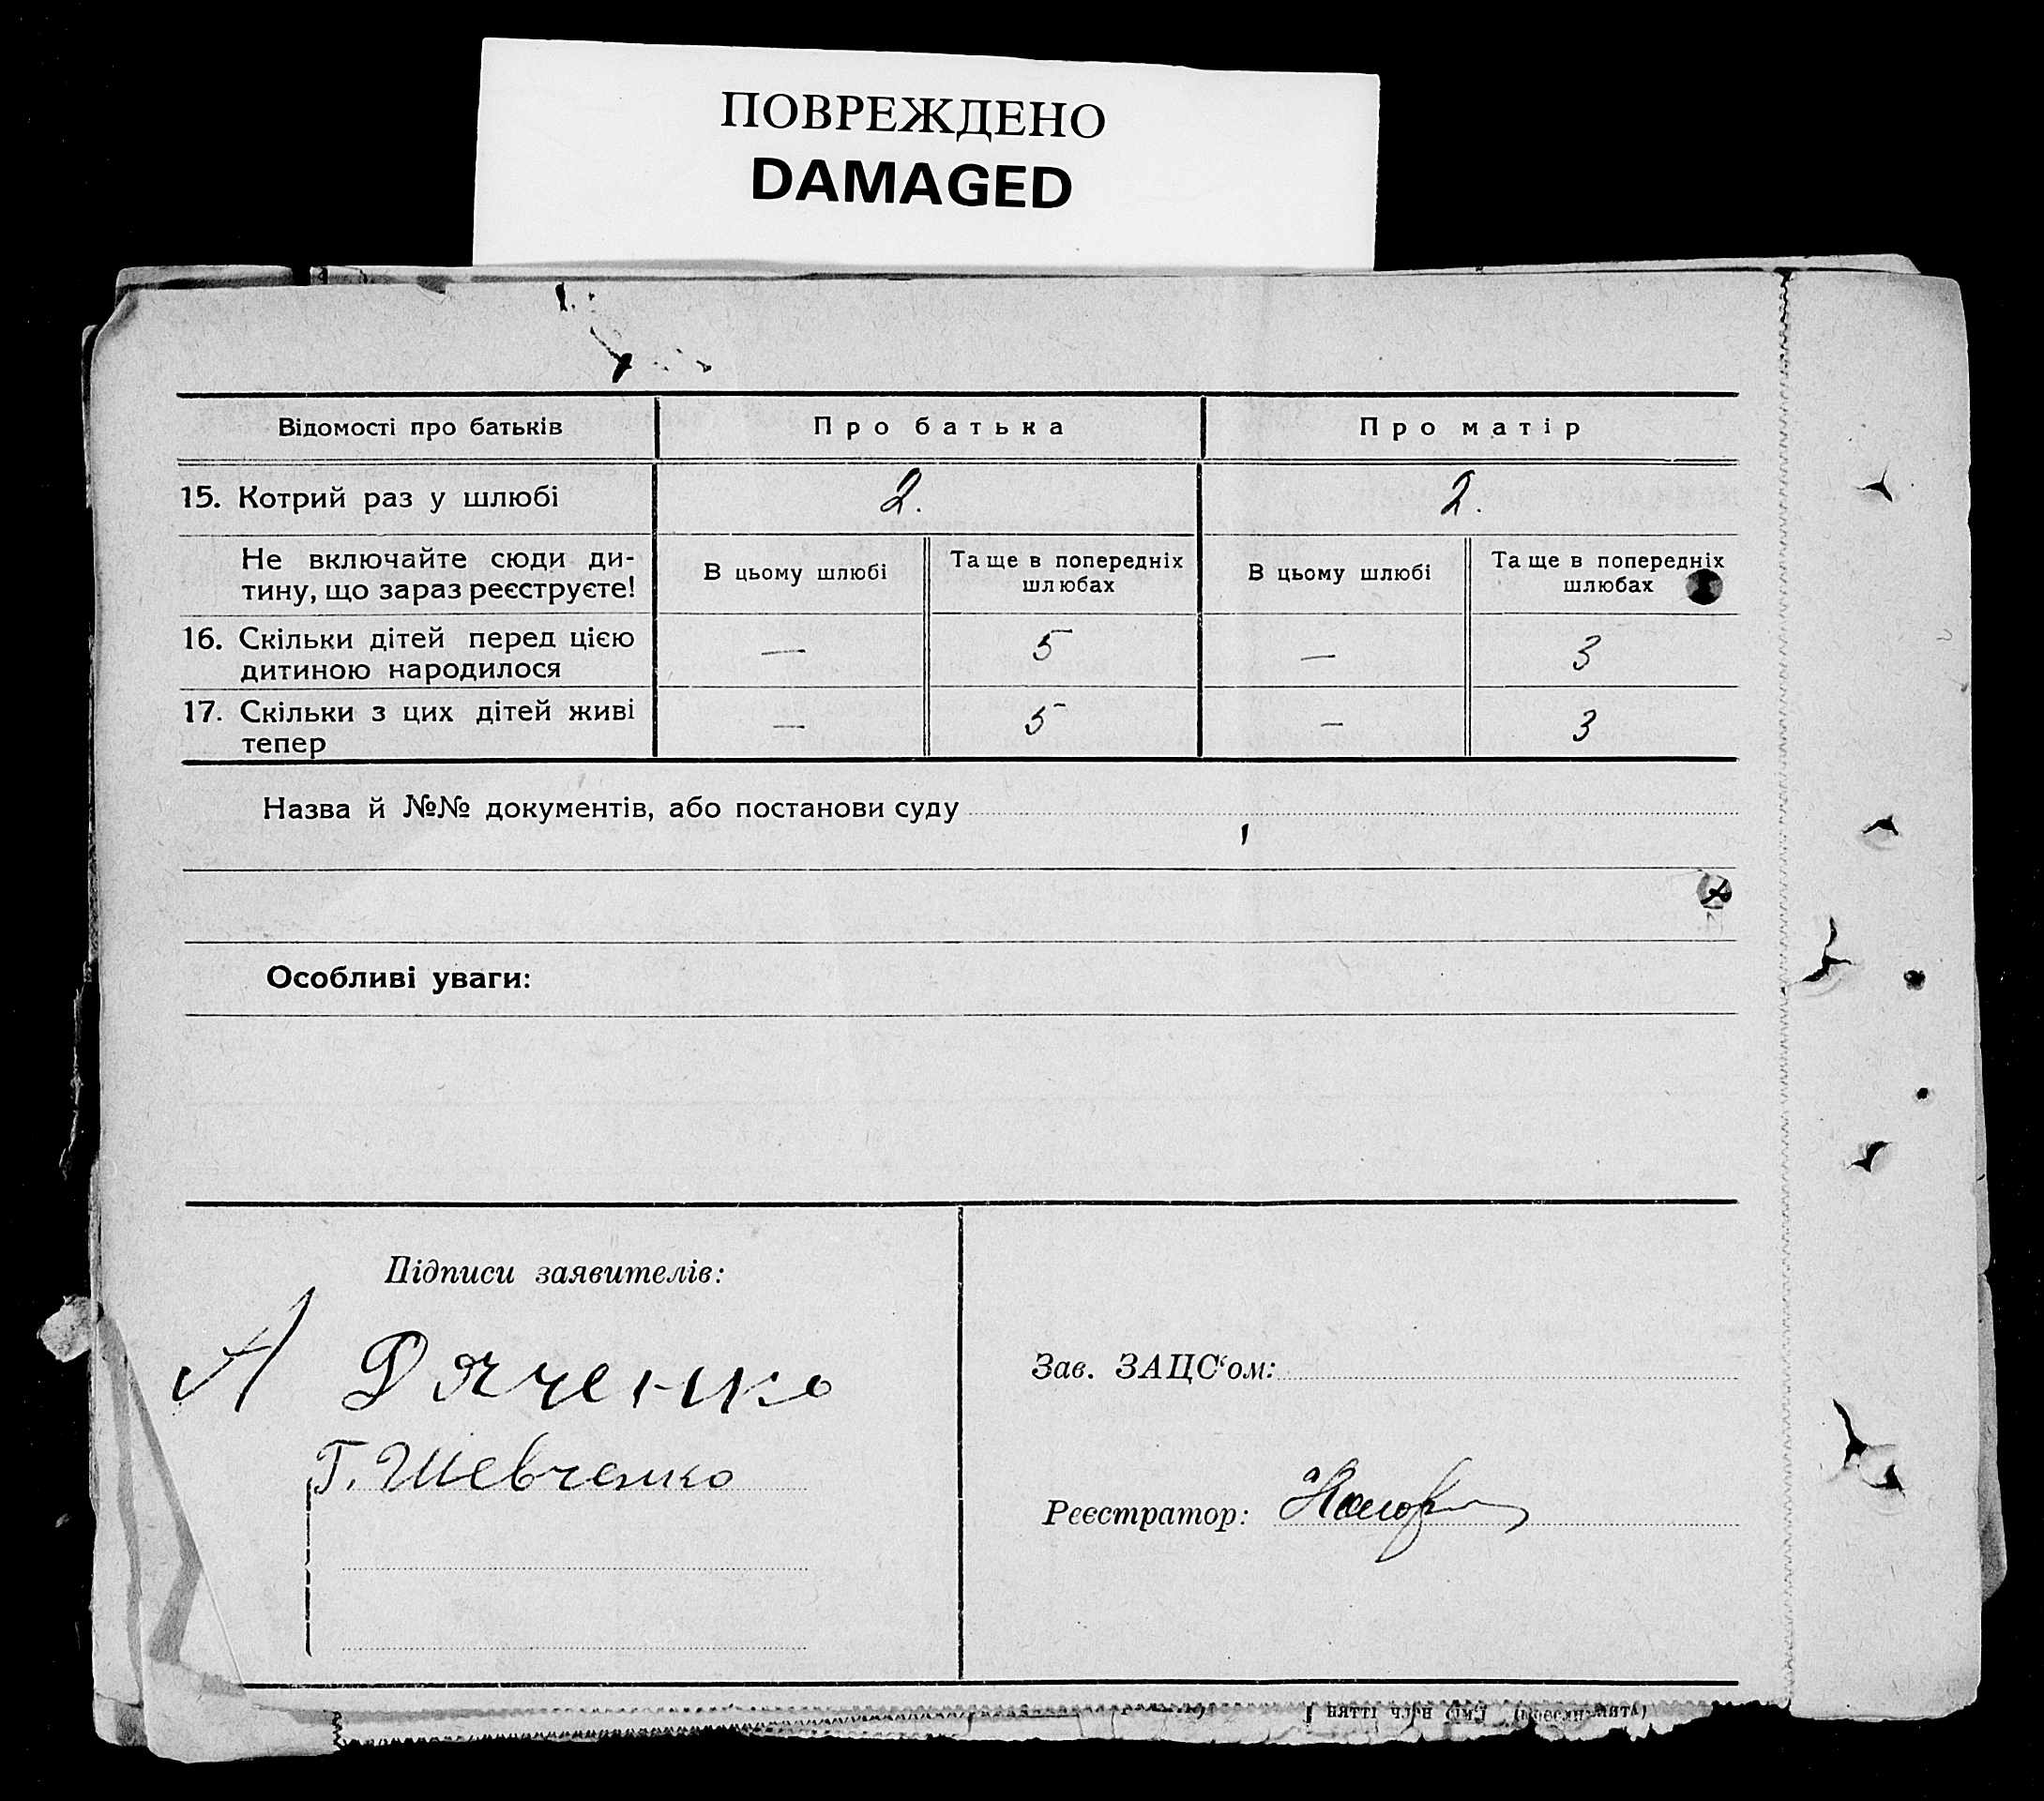 ПОВРЕЖДЕНО
DAMAGED
Відомості про батьків
Про батька
Про матір
15. Котрий раз у шлюбі
2.
2.
Не включайте сюди ди-
тину, що зараз реєструєте!
В цьому шлюбі
Та ще в попередніх
шлюбах
В цьому шлюбі
Та ще в попередніх
шлюбах
16. Скільки дітей перед цією
дитиною народилося
—
5
—
3
17. Скільки з цих дітей живі
тепер
—
5
—
3
Назва й №№ документів, або постанови суду
Особливі уваги:
Підписи заявителів:
А Дяченко
Г. Шевченко
Зав. ЗАЦС‘ом:
Реєстратор: